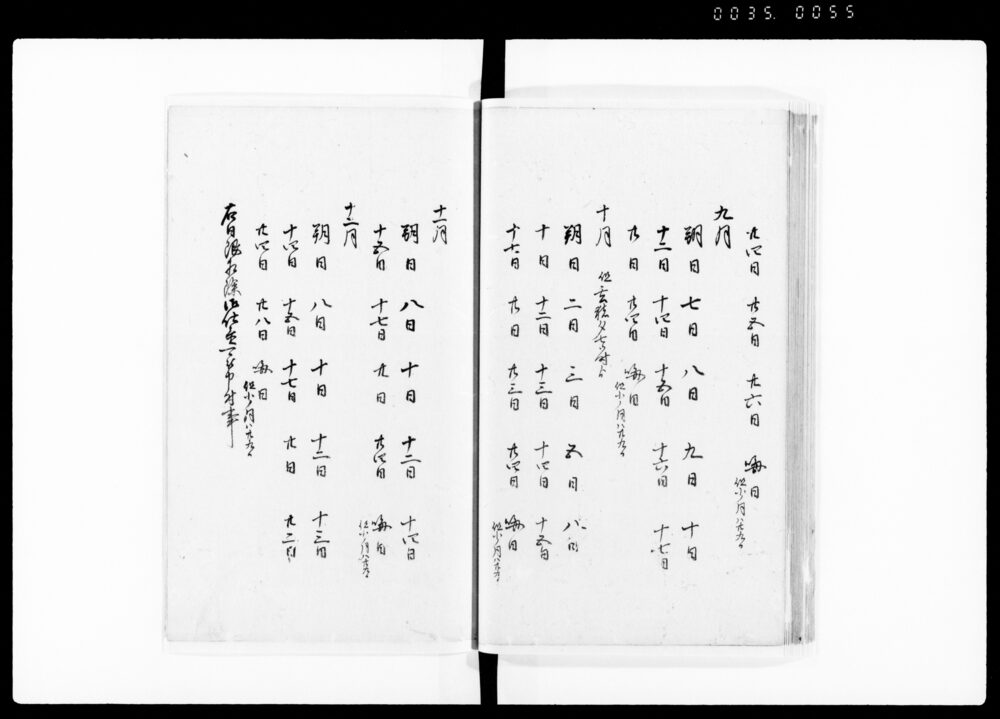 0035. 0055
廿四日 廿五日 廿六日 晦日 但小ノ月ハ廿九日
九月
朔日 七日 八日 九日 十日
十二日 十四日 十五日 十六日 十七日
廿日 廿四日 晦日 但小ノ月ハ廿九日
十月 但玄猪
朔日 二日 三日 五日 八日
十日 十二日 十三日 十四日 十五日
十七日 廿日 廿三日 廿四日 晦日 但小ノ月ハ廿九日
十一月
朔日 八日 十日 十二日 十四日
十五日 十七日 廿日 廿四日 晦日 但小ノ月ハ廿九日
十二月
朔日 八日 十日 十二日 十三日
十四日 十五日 十七日 廿日 廿二日
廿四日 廿八日 晦日 但小ノ月ハ廿九日
右日限相除御仕置可申付事